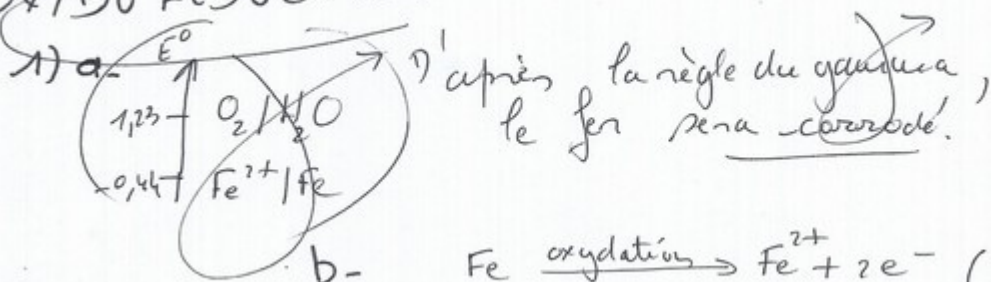 1) a- E⁰
1,23 O₂/H₂O
-0,44 Fe²⁺/Fe
D'après la règle du gamma,
le fer sera corrodé.
b- Fe oxydation → Fe²⁺ + 2e⁻ (